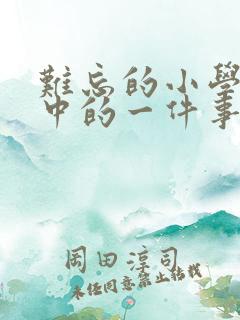 難忘的小學
中的一件事
岡田淳司
未任同意禁止結載